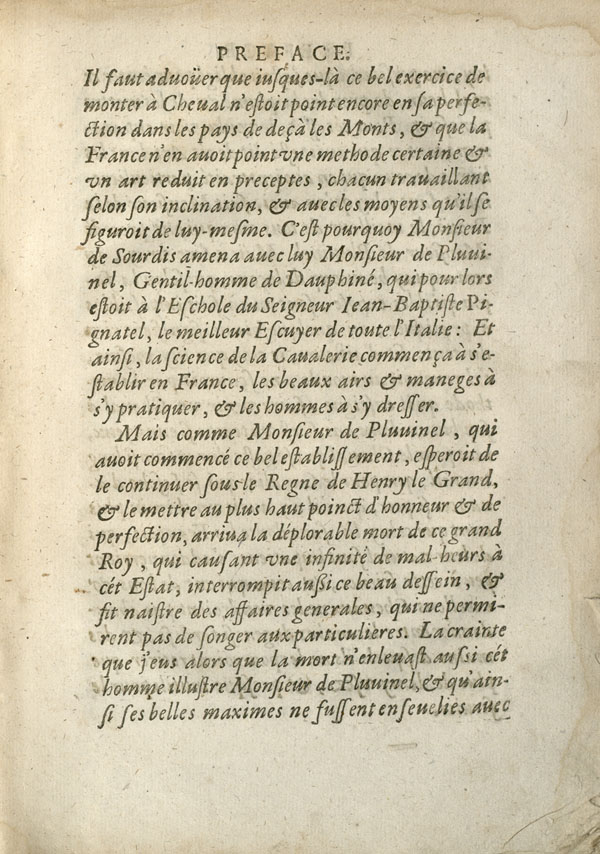 PREFACE.
Il faut aduoüer que iuſques-là ce bel exercice de
monter à Cheual n'eſtoit point encore en ſa perfe-
ction dans les pays de deçà les Monts, & que la
France n'en auoit point vne methode certaine &
vn art reduit en preceptes, chacun trauaillant
ſelon ſon inclination, & auec les moyens qu'il ſe
figuroit de luy-meſme. C'eſt pourquoy Monſieur
de Sourdis amena auec luy Monſieur de Pluui-
nel, Gentil-homme de Dauphiné, qui pour lors
eſtoit à l'Eſchole du Seigneur Iean-Baptiſte Pi-
gnatel, le meilleur Eſcuyer de toute l'Italie: Et
ainſi, la ſcience de la Caualerie commença à s'e-
ſtablir en France, les beaux airs & maneges à
s'y pratiquer, & les hommes à s'y dreſſer.
Mais comme Monſieur de Pluuinel, qui
auoit commencé ce bel eſtabliſſement, eſperoit de
le continuer ſous le Regne de Henry le Grand,
& le mettre au plus haut poinct d'honneur & de
perfection, arriua la déplorable mort de ce grand
Roy, qui cauſant vne infinité de mal-heurs à
cét Eſtat, interrompit auſſi ce beau deſſein, &
fit naiſtre des affaires generales, qui ne permi-
rent pas de ſonger aux particulières. La crainte
que j'eus alors que la mort n'enleuaſt auſſi cét
homme illuſtre Monſieur de Pluuinel, & qu'ain-
ſi ſes belles maximes ne fuſſent enſeuelies auec